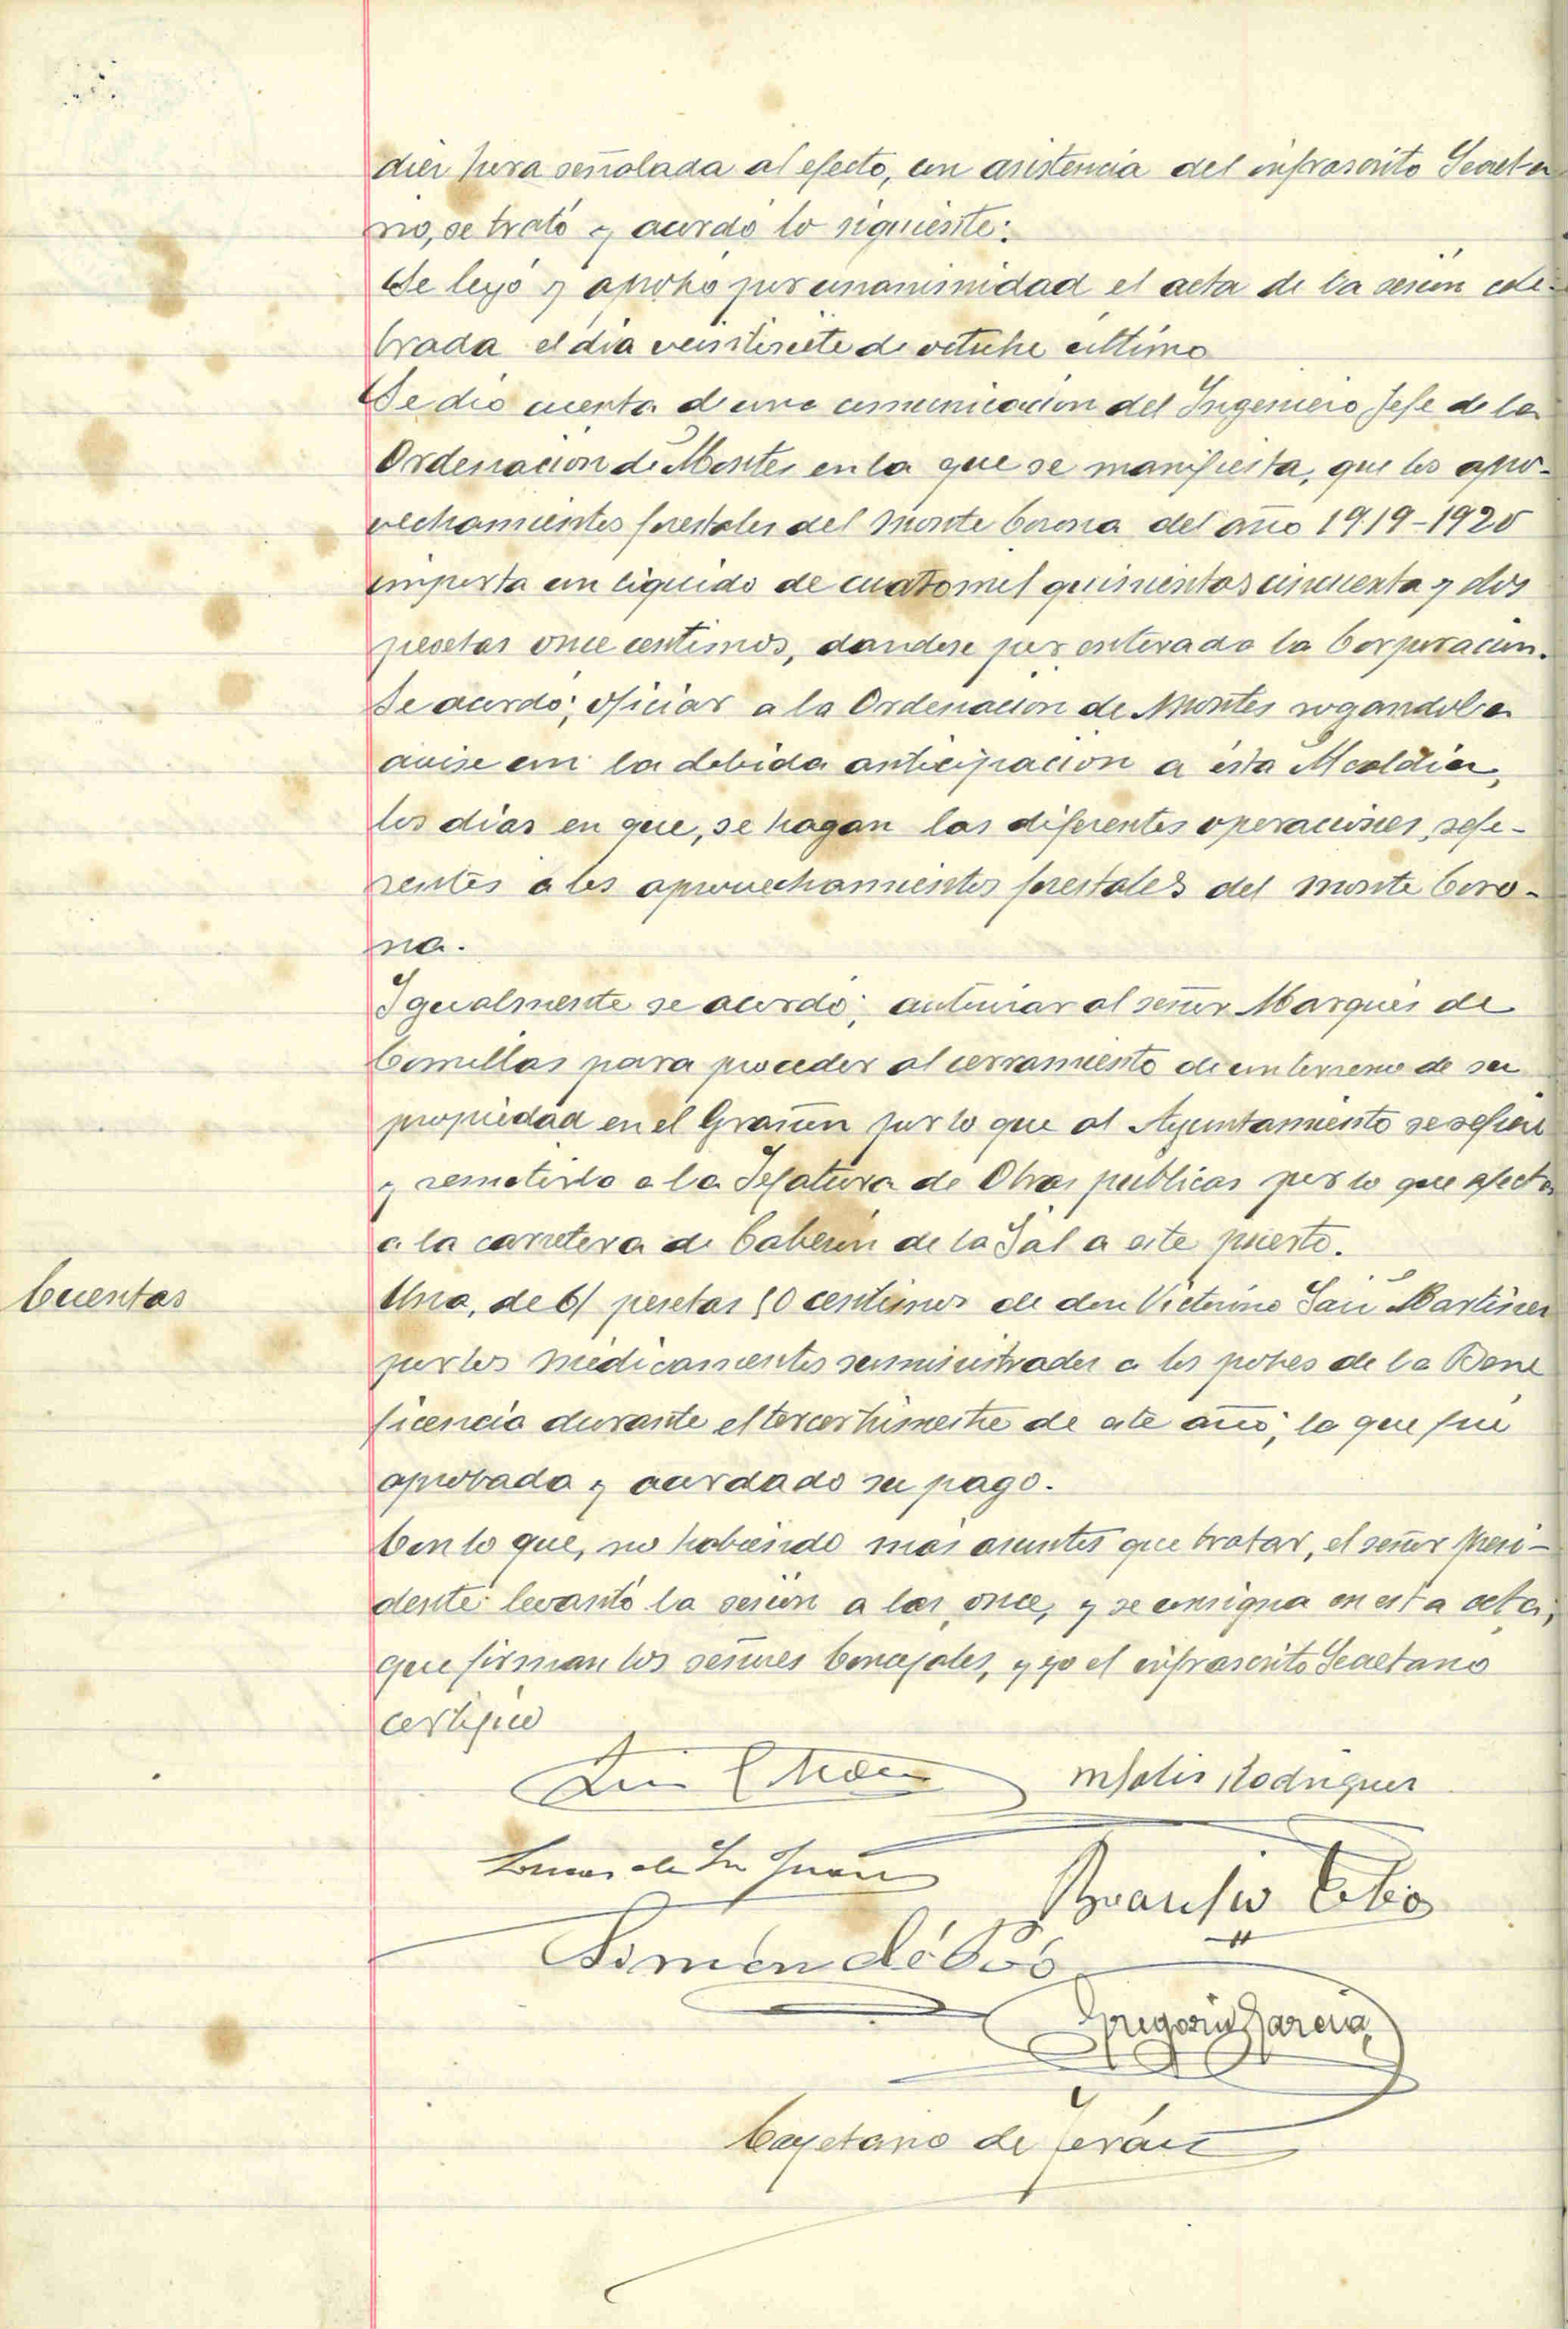 diez hora señalada al efecto, con asistencia del infrascrito Secreta
rio, se trató y acordó lo siguiente:
Se leyó y aprobó por unanimidad el acta de la sesión cele-
brada el día veintisiete de octubre último
Se dió cuenta de una comunicación del Ingeniero Jefe de la
Ordenación de Montes en la que se manifiesta, que los apro-
vechamientos forestales del Monte Corona del año 1919-1920
importa un liquido de cuatro mil quinientas cincuenta y dos
pesetas once centimos, dandose por enterada la Corporación.
Se acordó; oficiar a la Ordenación de Montes rogandole
avise con la debida anticipación a ésta Alcaldía,
los días en que, se hagan las diferentes operaciones, refe-
rentes a los aprovechamientos forestales del monte Coro-
na.
Igualmente se acordó; autorizar al señor Marqués de
Comillas para proceder al cerramiento de un terreno de su
propiedad en el por lo que al Ayuntamiento se refiere
y remitirlo a la Jefatura de Obras publicas por lo que afecta
a la carretera de Cabezón de la Sal a este puerto.
Cuentas
Una, de pesetas centimos de don Victorino San Martín
por los medicamentos suministrados a los pobres de la Bene
ficencia durante el tercer trimestre de este año; la que fué
aprobada y acordado su pago.
Con lo que, no habiendo mas asuntos que tratar, el señor Presi-
dente levantó la sesión a las once, y se consigna en esta acta,
que firman los señores Concejales, y yo el infrascrito Secretario
certifico
Rodriguez
Simón de Cos
Gregorio Garcia
Cayetano de Terán